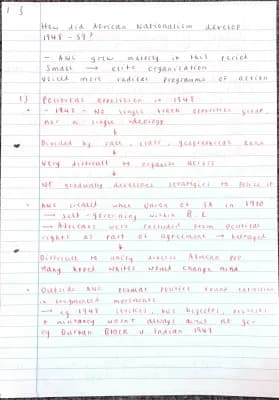 1 }
How did African Nationalism develop
1948 - 59?
- ANC grew massively in this period
Small → elite organisation
Used more radical programme of action
1) Political Repression in 1948
- 1948 - No single black opposition group,
nor a single ideology
↓
Divided by race, class, geographical area
↓
Very difficult to organise across
↓
NP gradually developed strategies to police it
• ANC created when Union of SA in 1910
→ self-governing within B.E
→ Africans were excluded from political
rights as part of agreement → betrayed
↓
Difficult to unify diverse African pop
Many hoped whites would change mind
• Outside ANC popular politics found expression
in fragmented movements
→ eg 1949 strikes, bus boycotts,
+ militancy wasn't always aimed at gov
eg Durban Black v Indian 1949